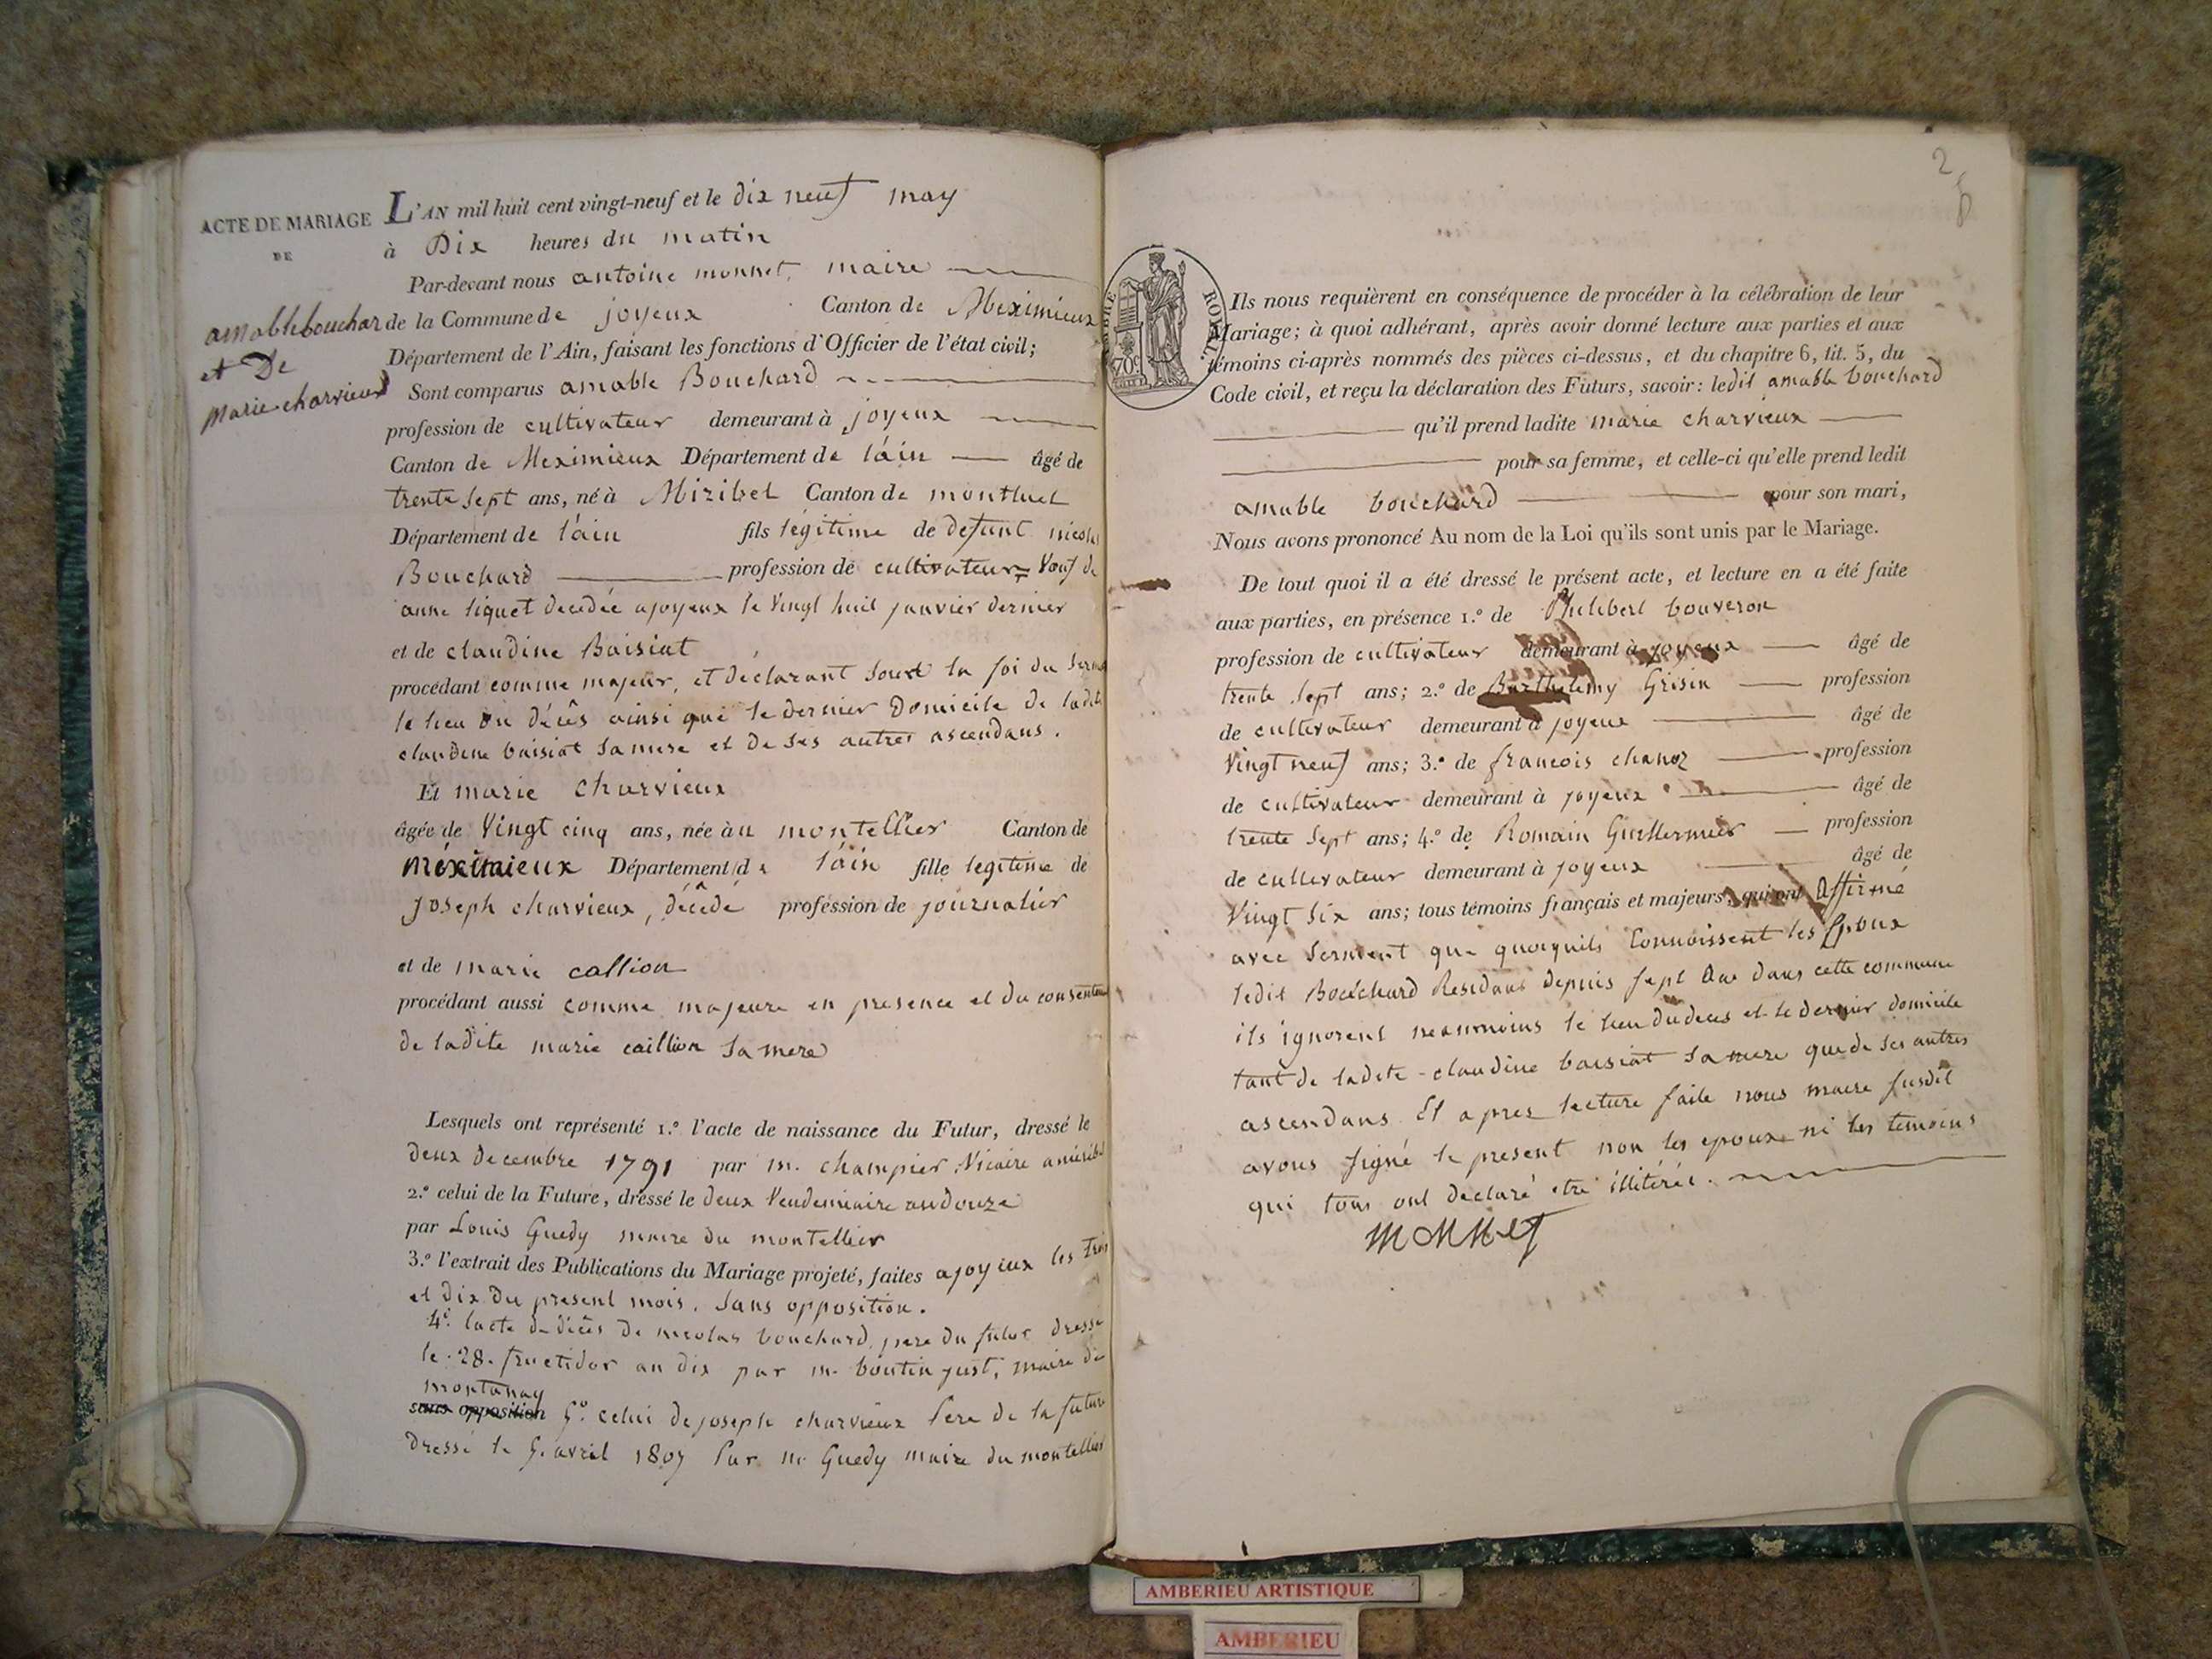 ACTE DE MARIAGE
DE
amable bouchar
et De
Marie charvieux
L'AN mil huit cent vingt-neuf et le dix neuf may
à Dix heures du matin
Par-devant nous antoine monnet, maire
de la Commune de joyeux Canton de Meximieux
Département de l'Ain, faisant les fonctions d'Officier de l'état civil;
Sont comparus amable Bouchard
profession de cultivateur demeurant à joyeux
Canton de Meximieux Département de l'ain âgé de
trente sept ans, né à Miribel Canton de montluel
Département de l'ain fils légitime de defunt nicolas
Bouchard profession de cultivateur = Veuf de
anne liquet decedée a joyeux le Vingt huit janvier dernier
et de claudine Baisiat
procédant comme majeur, et déclarant sous la foi du serment
le lieu du décès ainsi que le dernier Domicile de ladite
claudine baisiat sa mere et de ses autres ascendans.
Et marie charvieux
âgée de Vingt cinq ans, née àu montellier Canton de
méximieux Département de l'ain fille legitime de
joseph charvieux, décédé profession de journalier
et de marie callion
procédant aussi comme majeure en presence et du consentem
de ladite marie caillion sa mere
Lesquels ont représenté 1.º l'acte de naissance du Futur, dressé le
deux decembre 1791 par m. champier Vicaire a miribel
2.º celui de la Future, dressé le deux Vendemiaire an douze
par Louis Guedy maire du montellier
3.º l'extrait des Publications du Mariage projeté, faites a joyeux les trois
et dix du present mois, sans opposition.
4º. lacte de décès de nicolas bouchard, pere du futur dressé
le 28. fructidor an dix par m. boutin just, maire de
montanay
sans opposition 5º. celui de joseph charvieux Pere de la future
dressé le 5. avril 1807 Par m. Guedy maire du montellier
2
TIMBRE ROYAL
70c
Ils nous requièrent en conséquence de procéder à la célébration de leur
Mariage; à quoi adhérant, après avoir donné lecture aux parties et aux
témoins ci-après nommés des pièces ci-dessus, et du chapitre 6, tit. 5, du
Code civil, et reçu la déclaration des Futurs, savoir: ledit amable bouchard
qu'il prend ladite marie charvieux
pour sa femme, et celle-ci qu'elle prend ledit
amable bouchard pour son mari,
Nous avons prononcé Au nom de la Loi qu'ils sont unis par le Mariage.
De tout quoi il a été dressé le présent acte, et lecture en a été faite
aux parties, en présence 1.º de Philibert bouveron
profession de cultivateur demeurant à joyeux âgé de
trente sept ans; 2.º de Barthelemy Grisin profession
de cultivateur demeurant à joyeux âgé de
Vingt neuf ans; 3.º de francois chanoz profession
de cultivateur demeurant à joyeux âgé de
trente sept ans; 4.º de Romain Guillermier profession
de cultivateur demeurant à joyeux âgé de
Vingt six ans; tous témoins français et majeurs, qui ont affirmé
avec serment que quoiquils connoissent les Epoux
ledit Bouchard Residant depuis sept Ans dans cette commune
ils ignorent neanmoins le lieu du deces et le dernier domicile
tant de ladite claudine baisiat sa mere que de ses autres
ascendans. Et apres lecture faite nous maire susdit
avons signé le present non les epoux ni les temoins
qui tous ont declaré etre illitérés.
Monnet
AMBERIEU ARTISTIQUE
AMBERIEU